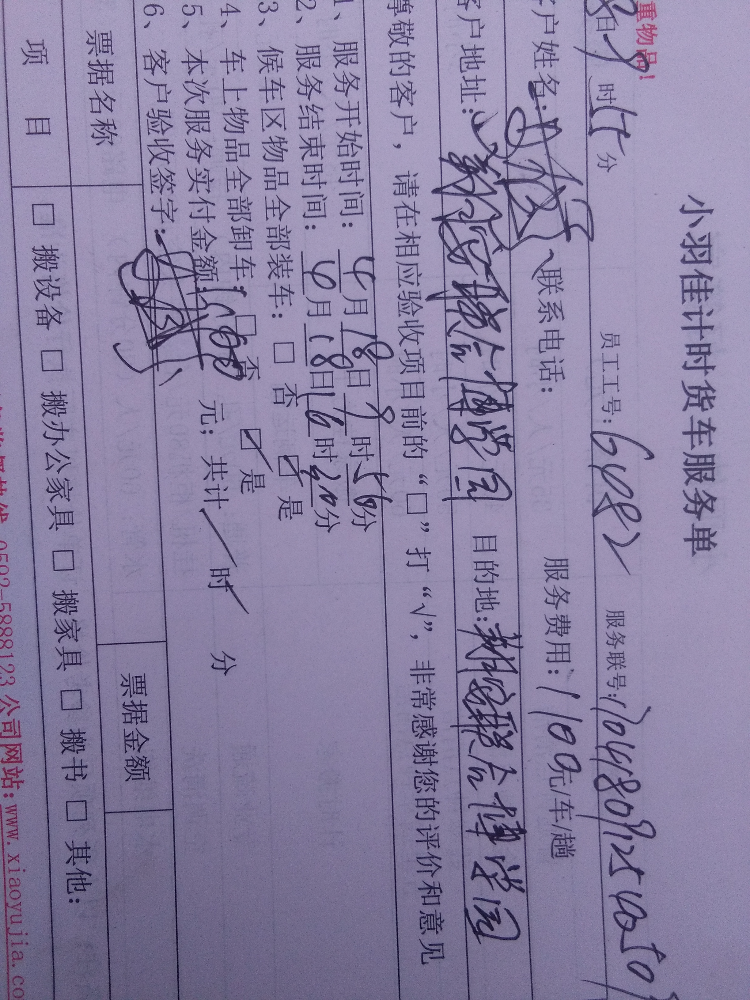 重物品!
小羽佳计时货车服务单
8日9时15分 员工工号:6482 服务联号:
客户姓名: 联系电话: 服务费用:1100元/车/趟
客户地址: 联合博学园 目的地: 联合博学园
尊敬的客户,请在相应验收项目前的“□”打“√”,非常感谢您的评价和意见
1、服务开始时间:4月18日9时56分
2、服务结束时间:4月18日16时20分
3、候车区物品全部装车:□ 否 ☑ 是
4、车上物品全部卸车:□ 否 ☑ 是
5、本次服务实付金额: 元;共计/时/分
6、客户验收签字:
票据名称 票据金额
项 目 □ 搬设备 □ 搬办公家具 □ 搬家具 □ 搬书 □ 其他:
0592-5888123 公司网站:www.xiaoyujia.co